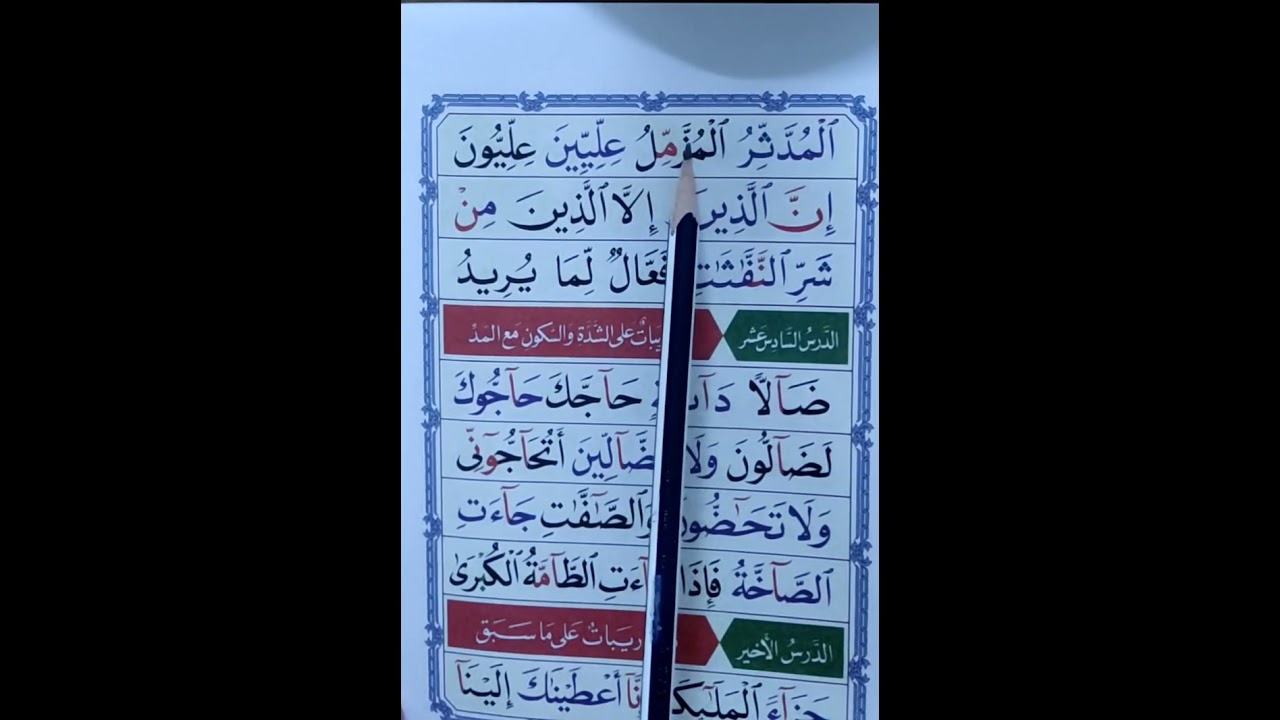 ٱلْمُدَّثِّرُ ٱلْمُزَّمِّلُ عِلِّيِّينَ عِلِّيُّونَ
إِنَّ ٱلَّذِينَ إِلَّا ٱلَّذِينَ مِنْ
شَرِّ ٱلنَّفَّٰثَٰتِ فَعَّالٌ لِّمَا يُرِيدُ
الدَّرسُ السَّادِس عَشر
عَلى الشَّدَةِ وَالسّكونِ مَع المَدّ
ضَآلًّا حَآجَّكَ حَآجُّوكَ
لَضَآلُّونَ أَتُحَآجُّوٓنِّى
وَلَا تَحَٰٓضُّونَ وَٱلصَّٰٓفَّٰتِ جَآءَتِ
ٱلصَّآخَّةُ فَإِذَا ٱلطَّآمَّةُ ٱلْكُبْرَىٰ
الدَّرسُ الأَخير
عَلىٰ مَا سَبَق
جَزَآءً أَعْطَيْنَٰكَ إِلَيْنَآ